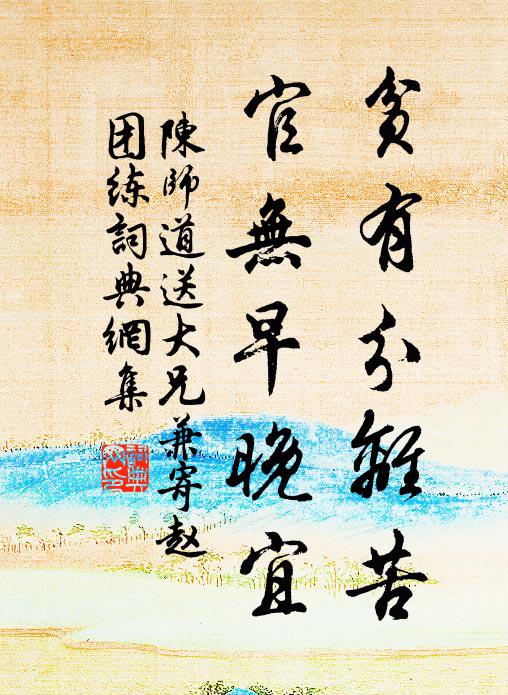 貧有分離苦
官無早晚宜
陳師道送大兄兼寄赵
团练詞典網集